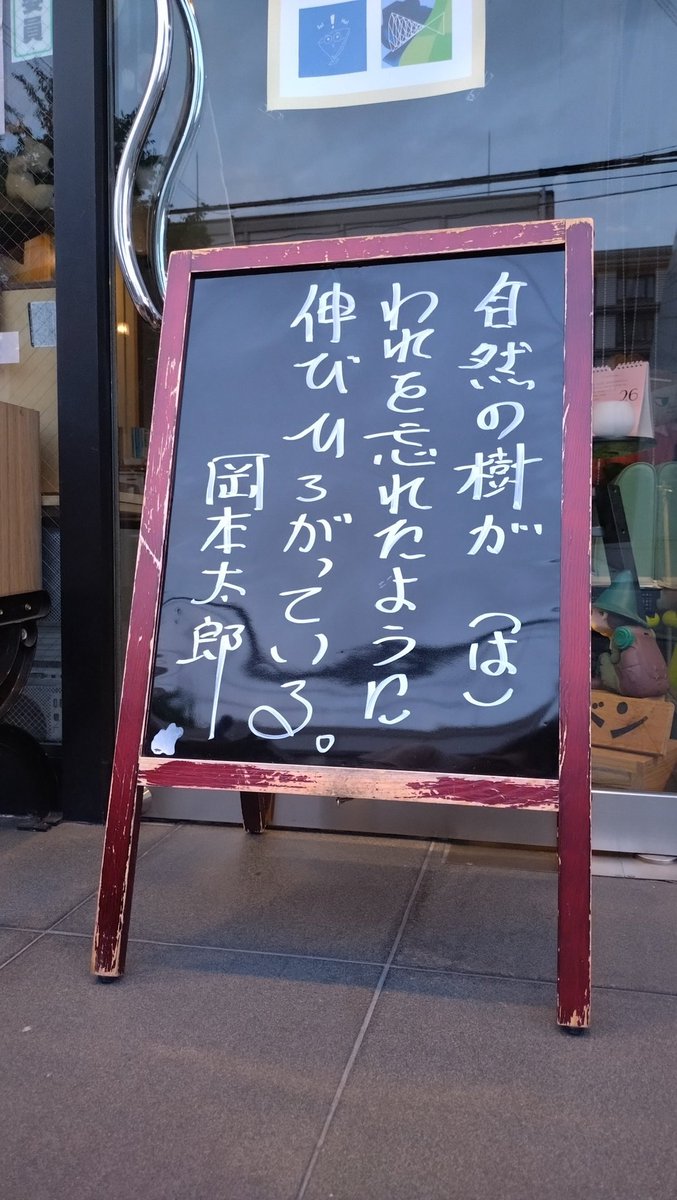 自然の樹が（は）
われを忘れたように
伸びひろがっている。
岡本太郎
委員
26